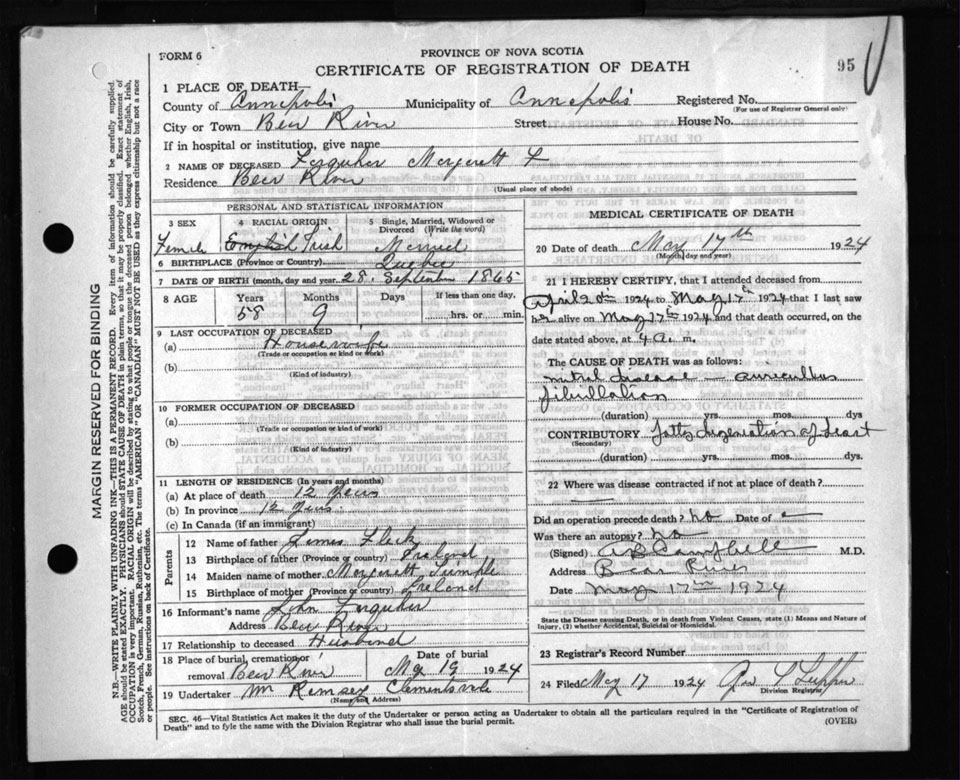 FORM 6
PROVINCE OF NOVA SCOTIA
CERTIFICATE OF REGISTRATION OF DEATH
95
1 PLACE OF DEATH
County of Annapolis Municipality of Annapolis Registered No.
(For use of Registrar General only)
City or Town Bear River Street House No.
If in hospital or institution, give name
2 NAME OF DECEASED Farquhar Margarett F
Residence Bear River
(Usual place of abode)
PERSONAL AND STATISTICAL INFORMATION
3 SEX 4 RACIAL ORIGIN 5 Single, Married, Widowed or Divorced (Write the word)
Female Irish Married
6 BIRTHPLACE (Province or Country) Quebec
7 DATE OF BIRTH (month, day and year) 28 September 1865
8 AGE Years Months Days If less than one day,
58 9 hrs. or min.
9 LAST OCCUPATION OF DECEASED
(a) Housewife
(Trade or occupation or kind of work)
(b)
(Kind of industry)
10 FORMER OCCUPATION OF DECEASED
(a)
(Trade or occupation or kind of work)
(b)
(Kind of industry)
11 LENGTH OF RESIDENCE (In years and months)
(a) At place of death 12 years
(b) In province 12 years
(c) In Canada (if an immigrant)
Parents
12 Name of father James Fleck
13 Birthplace of father (Province or country) Ireland
14 Maiden name of mother Margarett
15 Birthplace of mother (Province or country) Ireland
16 Informant's name John Farquhar
Address Bear River
17 Relationship to deceased Husband
18 Place of burial, cremation or removal Bear River Date of burial May 19 1924
19 Undertaker Wm Ramsey Clementsvale
(Name and Address)
MEDICAL CERTIFICATE OF DEATH
20 Date of death May 17th 1924
(Month, day and year)
21 I HEREBY CERTIFY, that I attended deceased from
April 20th 1924 to May 17th 1924 that I last saw
her alive on May 17th 1924 and that death occurred, on the
date stated above, at 4 a. m.
The CAUSE OF DEATH was as follows:
mitral disease — auricular
fibrillation
(duration) yrs. mos. dys
CONTRIBUTORY fatty degeneration of heart
(Secondary)
(duration) yrs. mos. dys.
22 Where was disease contracted if not at place of death?
Did an operation precede death? no Date of
Was there an autopsy? no
(Signed) Campbell M.D.
Address Bear River
Date May 17th 1924
State the Disease Causing Death, or in death from Violent Causes, state (1) Means and Nature of Injury, (2) whether Accidental, Suicidal or Homicidal.
23 Registrar's Record Number
24 Filed May 17 1924
Division Registrar
SEC. 46—Vital Statistics Act makes it the duty of the Undertaker or person acting as Undertaker to obtain all the particulars required in the "Certificate of Registration of
Death" and to fyle the same with the Division Registrar who shall issue the burial permit. (OVER)
MARGIN RESERVED FOR BINDING
N.B.—WRITE PLAINLY WITH UNFADING INK—THIS IS A PERMANENT RECORD. Every item of information should be carefully supplied.
AGE should be stated EXACTLY. PHYSICIANS should STATE CAUSE OF DEATH in plain terms, so that it may be properly classified. Exact statement of
OCCUPATION is very important. RACIAL ORIGIN will be described by stating to what people or tongue the deceased person belonged, whether English, Irish,
Scotch, French, German, Russian, Ruthenian, etc. The terms "AMERICAN" or "CANADIAN" MUST NOT BE USED as they express citizenship but not a race
or people. See instructions on back of Certificate.